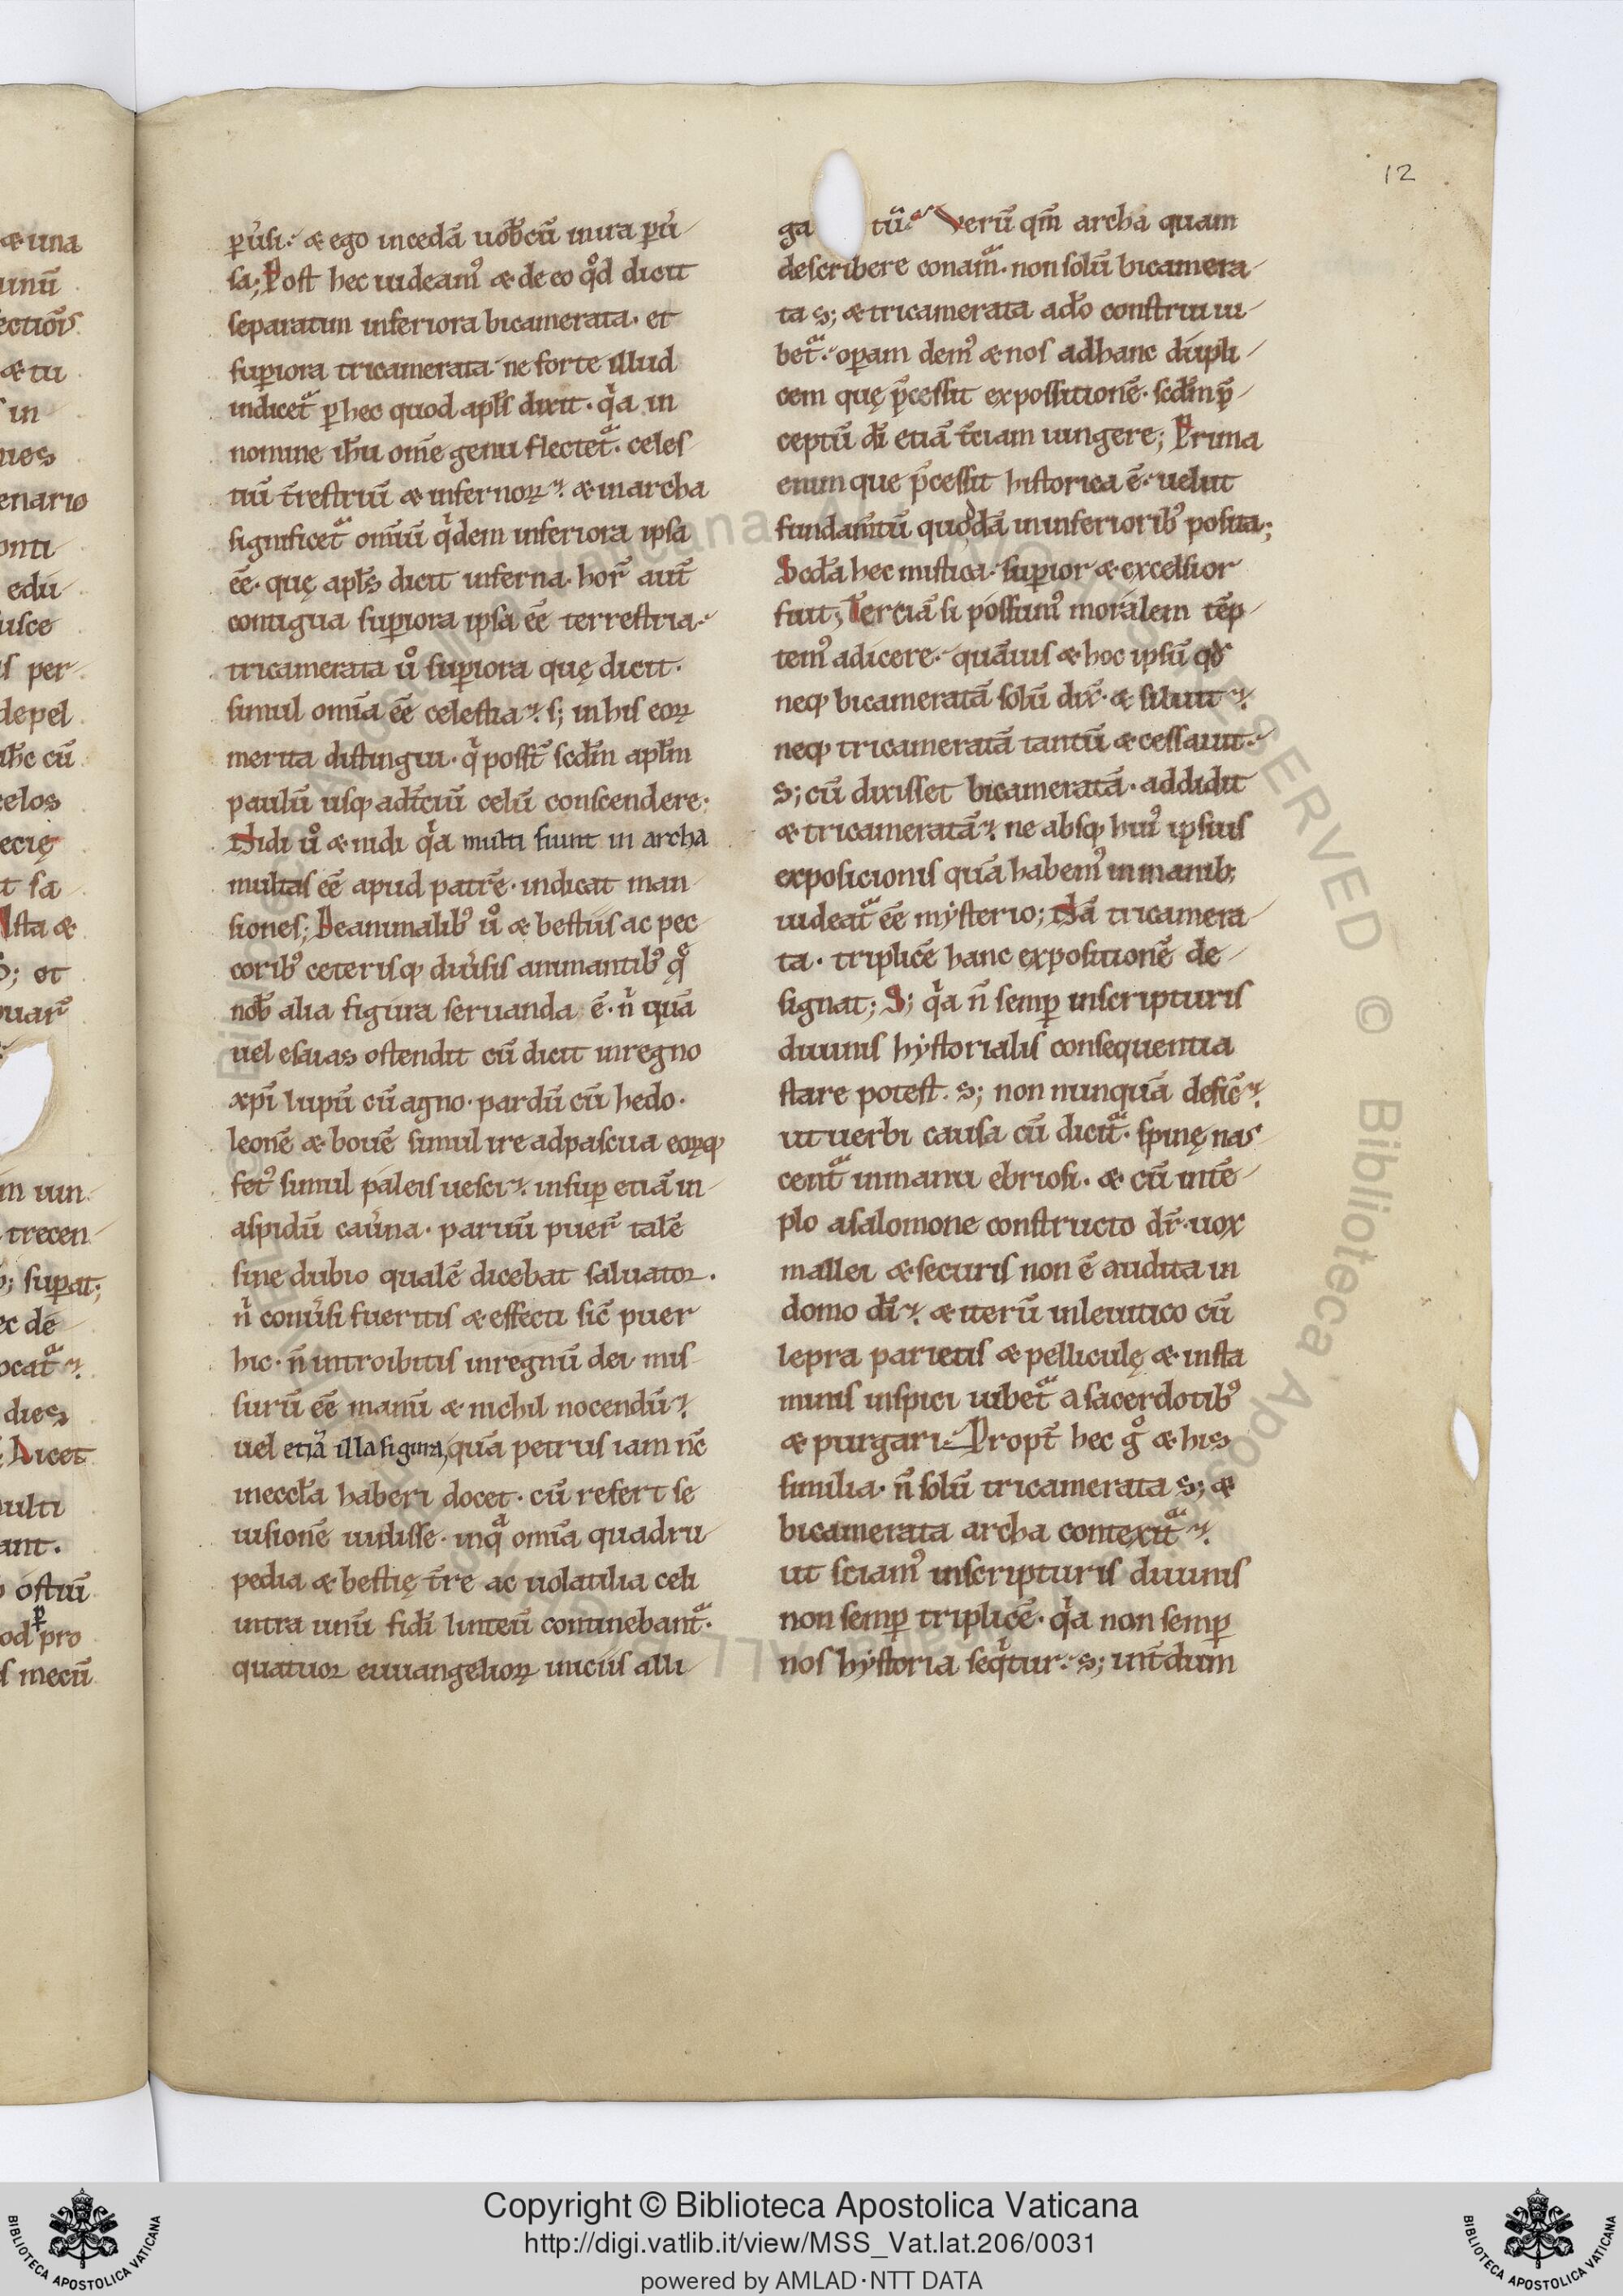 12
æ una
unū
ectiōis
æ tu
in
nies
enario
onti
edu
usce
s per
depel
ahc cū
celos
ecię
t sa
Ista æ
S; et
uar̄
m iun
trecen
supat;
ec de
ocat᷒
dies
Licet
ulti
ant.
ostiū
od pro
s mecū
puersi. æ ego incedā uobcū in ira pui
sa; Post hec uideam᷒ æ de eo qd dicit
separatim inferiora bicamerata. et
supiora tricamerata ne forte illud
indicet᷒ p hec quod apłs dixit. qa in
nomine ihu om̄e genu flectet᷒. celes
tiū t̄restriū æ infernoꝝ. æ in archa
significet᷒ omniū qdem inferiora ipsa
ee᷒. quę apłs dicit inferna. hor̄ aut̄
contigua supiora ipsa ēē terrestria.
tricamerata u᷒ supiora quę dicit.
simul om̄ia ēē celestia. s; in his eoꝝ
merita distingui. q posst̄ scd̄m apłm
paulū usq; ad t̄ciū celū conscendere.
Nidi u᷒ æ nidi qa multi fiunt in archa
multas ēē apud patrē. indicat man
siones; De animalib᷒ u᷒ æ bestiis ac pec
corib᷒ ceterisq; diuersis animantib᷒ que
nob alia figura seruanda ē. n quā
uel esaias ostendit cū dicit in regno
xp̄i lupū cū agno. pardū cū hedo.
leonē æ bouē simul ire ad pascua eoꝝq;
fet᷒ simul paleis uesci. insup etiā in
aspidū cauerna. paruū puer̄ talē
sine dubio qualē dicebat saluator.
n conuersi fueritis æ effecti sic̄ puer
hic. n̄ introibitis in regnū dei mis
surū ēē manū æ nichil nocendū.
uel etiā illa figura, quā petrus iam nc̄
in eccła haberi docet. cū refert se
uisionē uidisse. in qa om̄ia quadru
pedia æ bestię t̄re ac uolatilia celi
intra unū fidi linteū continebant᷒.
quatuor euuangelioꝝ iniciis alli
ga tū. Verū qm̄ archa quam
describere conam᷒. non solū bicamera
ta s; æ tricamerata a dō construi iu
bet᷒. opam dem᷒ æ nos ad hanc dupli
cem quę p̄cessit expossitionē. scd̄m p̄
ceptū dī etiā t̄ciam iungere; Prima
enim que p̄cessit historica ē. uelut
fundam̄tū quoddā in inferiorib᷒ posita;
Scd̄a hec mistica. supior æ excelsior
fuit; Terciā si possum᷒ moralem tēp
tem᷒ adicere. quāuis æ hoc ipsū qd
neq; bicameratā solū dix̄. æ siluit.
neq; tricameratā tantū æ cessauit.
S; cū dixisset bicameratā. addidit
æ tricameratā. ne absq; hui᷒ ipsius
exposicionis quā habem᷒ in manib;
uideat᷒ ēē mysterio; Nā tricamera
ta. triplicē hanc expositionē de
signat; S; qa n̄ semp in scripturis
diuinis hystorialis consequentia
stare potest. s; non nunquā defic̄.
ut uerbi causa cū dicit᷒. spinę nas
cent᷒ in manu ebriosi. æ cū in tē
plo a salomone constructo dr̄. uox
mallei æ securis non ē audita in
domo dī. æ iterū in leuitico cū
lepra parietis æ pelliculę æ insta
minis inspici iubet᷒ a sacerdotib᷒
æ purgari. Propt̄ hec g᷒ æ his
similia. n̄ solū tricamerata s; æ
bicamerata archa contexit᷒.
ut sciam᷒ in scripturis diuinis
non semp triplicē. qa non semp
nos hystoria seqtur. s; int̄dum
Copyright © Biblioteca Apostolica Vaticana
http://digi.vatlib.it/view/MSS_Vat.lat.206/0031
powered by AMLAD·NTT DATA
BIBLIOTECA APOSTOLICA VATICANA
BIBLIOTECA APOSTOLICA VATICANA